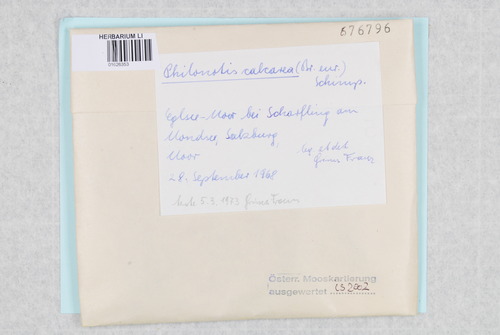 HERBARIUM LI
676796
Philonotis calcarea (Br. eur.)
Schimp.
Egelsee-Moor bei Scharfling am
Mondsee, Salzburg,
Moor
leg. et det.
28. September 1968
5.3. 1973
Österr. Mooskartierung
ausgewertet CS 2002